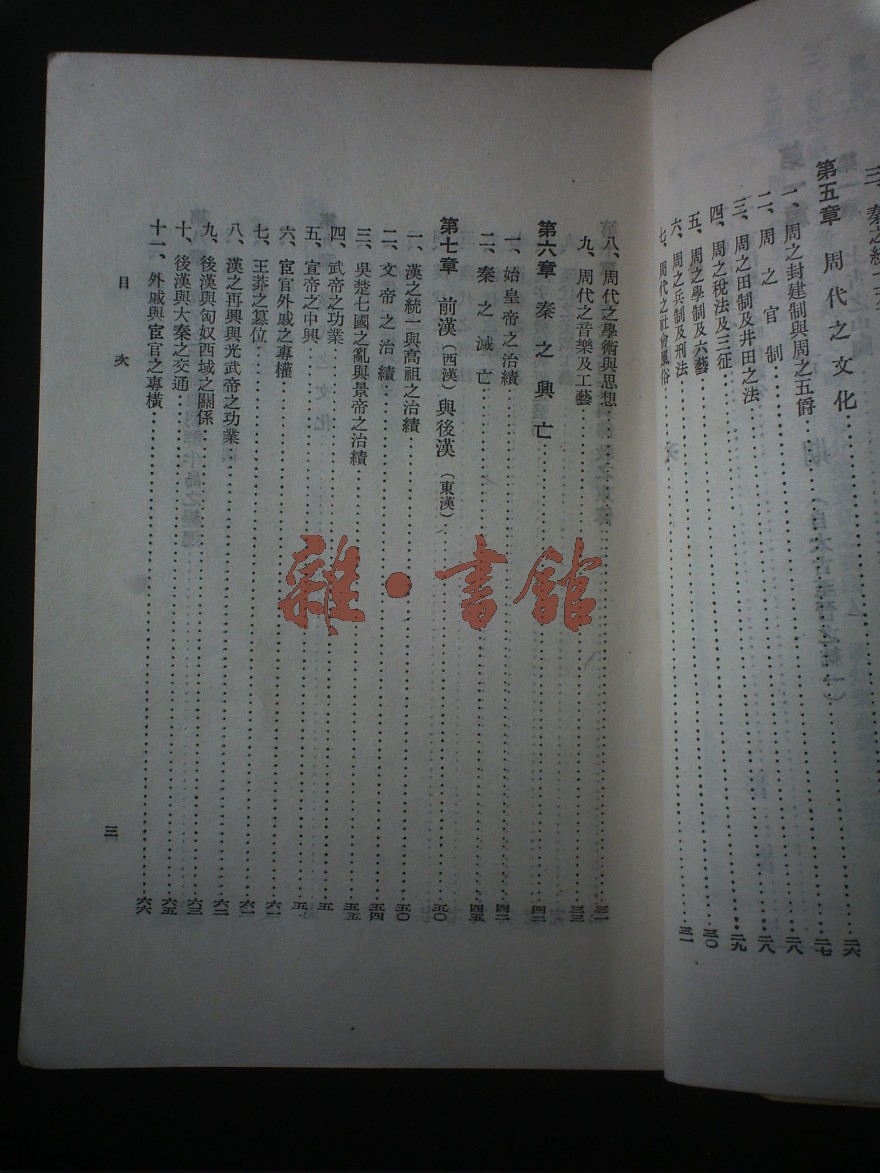 第五章 周代之文化……二七
一、周之封建制與周之五爵……二八
二、周之官制……二八
三、周之田制及井田之法……二九
四、周之稅法及三征……三〇
五、周之學制及六藝……三一
六、周之兵制及刑法
七、周代之社會風俗
八、周代之學術與思想……三二
九、周代之音樂及工藝……三三
第六章 秦之興亡……四二
一、始皇帝之治績……四二
二、秦之滅亡……四五
第七章 前漢（西漢）與後漢（東漢）……五〇
一、漢之統一與高祖之治績……五〇
二、文帝之治績……五四
三、吳楚七國之亂與景帝之治績……五五
四、武帝之功業
五、宣帝之中興
六、宦官外戚之專權……六一
七、王莽之篡位……六一
八、漢之再興與光武帝之功業……六二
九、後漢與匈奴西域之關係……六三
十、後漢與大秦之交通……六五
十一、外戚與宦官之專橫……六六
目次
三
雜·書館